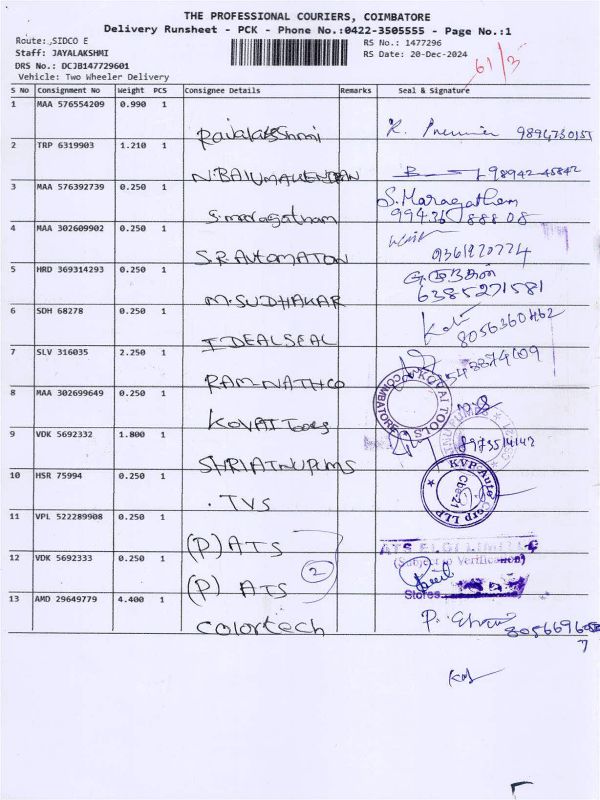 THE PROFESSIONAL COURIERS, COIMBATORE
Delivery Runsheet - PCK - Phone No.:0422-3505555 - Page No.:1
Route: ,SIDCO E
RS No.: 1477296
Staff: JAYALAKSHMI
RS Date: 20-Dec-2024
61/3
DRS No.: DCJB147729601
Vehicle: Two Wheeler Delivery
S No Consignment No Weight PCS Consignee Details Remarks Seal & Signature
1 MAA 576554209 0.990 1
Rajalakshmi K. Premier
2 TRP 6319903 1.210 1
N.BALUMAHENDRAN 98942-45842
3 MAA 576392739 0.250 1
S.maragatham S.Maragatham
99436 88808
4 MAA 302609902 0.250 1
S.R.AUTOMATON 9361220774
5 HRD 369314293 0.250 1
M.SUDHAKAR 6385271581
6 SDH 68278 0.250 1
IDEAL SEAL 8056360462
7 SLV 316035 2.250 1
RAM-NATH CO
8 MAA 302699649 0.250 1
KOVAI Tools KOVAI TOOLS COIMBATORE
9 VDK 5692332 1.800 1
8973514142
10 HSR 75994 0.250 1
. TVS KVP Auto Corp LLP Cbe-21
11 VPL 522289908 0.250 1
(P) ATS ATS ELGI LIMITED
12 VDK 5692333 0.250 1
(Subject to Verification)
2
(P) ATS Stores
13 AMD 29649779 4.400 1
Colortech